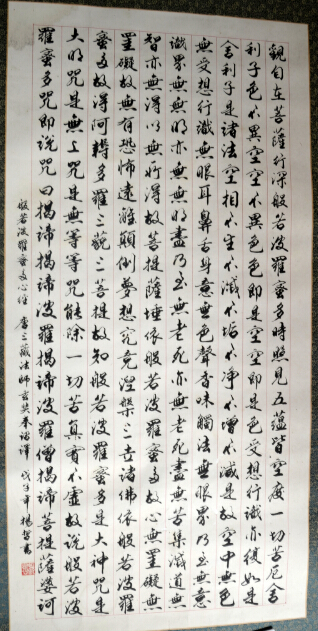 觀自在菩薩行深般若波羅蜜多時照見五蘊皆空度一切苦厄舍
利子色不異空空不異色色即是空空即是色受想行識亦復如是
舍利子是諸法空相不生不滅不垢不淨不增不減是故空中無色
無受想行識無眼耳鼻舌身意無色聲香味觸法無眼界乃至無意
識界無無明亦無無明盡乃至無老死亦無老死盡無苦集滅道無
智亦無得以無所得故菩提薩埵依般若波羅蜜多故心無罣礙無
罣礙故無有恐怖遠離顛倒夢想究竟涅槃三世諸佛依般若波羅
蜜多故得阿耨多羅三藐三菩提故知般若波羅蜜多是大神咒是
大明咒是無上咒是無等等咒能除一切苦真實不虛故說般若波
羅蜜多咒即說咒曰揭諦揭諦波羅揭諦波羅僧揭諦菩提薩婆訶
般若波羅蜜多心經 唐三藏法師玄奘奉詔譯 戊 楊 書